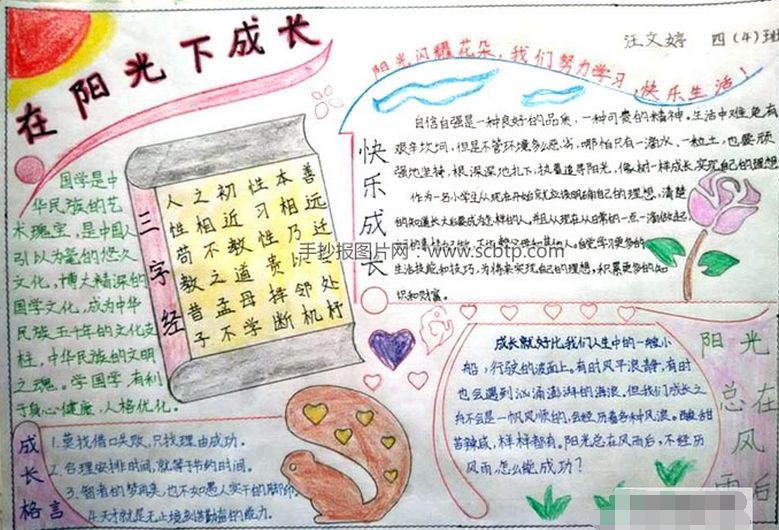 在阳光下成长
汪文婷 四(4)班
阳光闪耀花朵,我们努力学习,快乐生活!
国学是中
华民族的艺
术瑰宝,是中国人
引以为豪的悠久
文化,博大精深的
国学文化,成为中华
民族五千年的文化支
柱,中华民族的文明
之魂。学国学,有利
于身心健康,人格优化。
三字经
人之初 性本善
性相近 习相远
苟不教 性乃迁
教之道 贵以
昔孟母 择邻处
子不学 断机杼
快乐成长
自信自强是一种良好的品质,一种可贵的精神。生活中难免有
艰辛坎坷,但是不管环境多么恶劣,哪怕只有一滴水,一粒土,也要顽
强地坚持,根深深地扎下,执着追寻阳光,像树一样成长,实现自己的理想
作为一名小学生从现在开始就应该明确自己的理想,清楚
的知道长大后要成为怎样的人。并且从现在从日常的一点一滴做起,
生活技能和技巧,为将来实现自己的理想,积累更多的知
识和财富。
手抄报图片网:www.scbtp.com
成长就好比我们人生中的一艘小
船,行驶的波面上。有时风平浪静,有时
也会遇到汹涌澎湃的海浪。但我们成长之
路不会是一帆风顺的,会经历着各种风浪。酸甜
苦辣咸,样样都有。阳光总在风雨后,不经历
风雨,怎么能成功?
阳光总在风雨后
成长格言
1.莫找借口失败,只找理由成功。
2.合理安排时间,就等于节约时间。
3.智者的梦再美,也不如愚人实干的脚印。
4.天才就是无止境刻苦勤奋的能力。